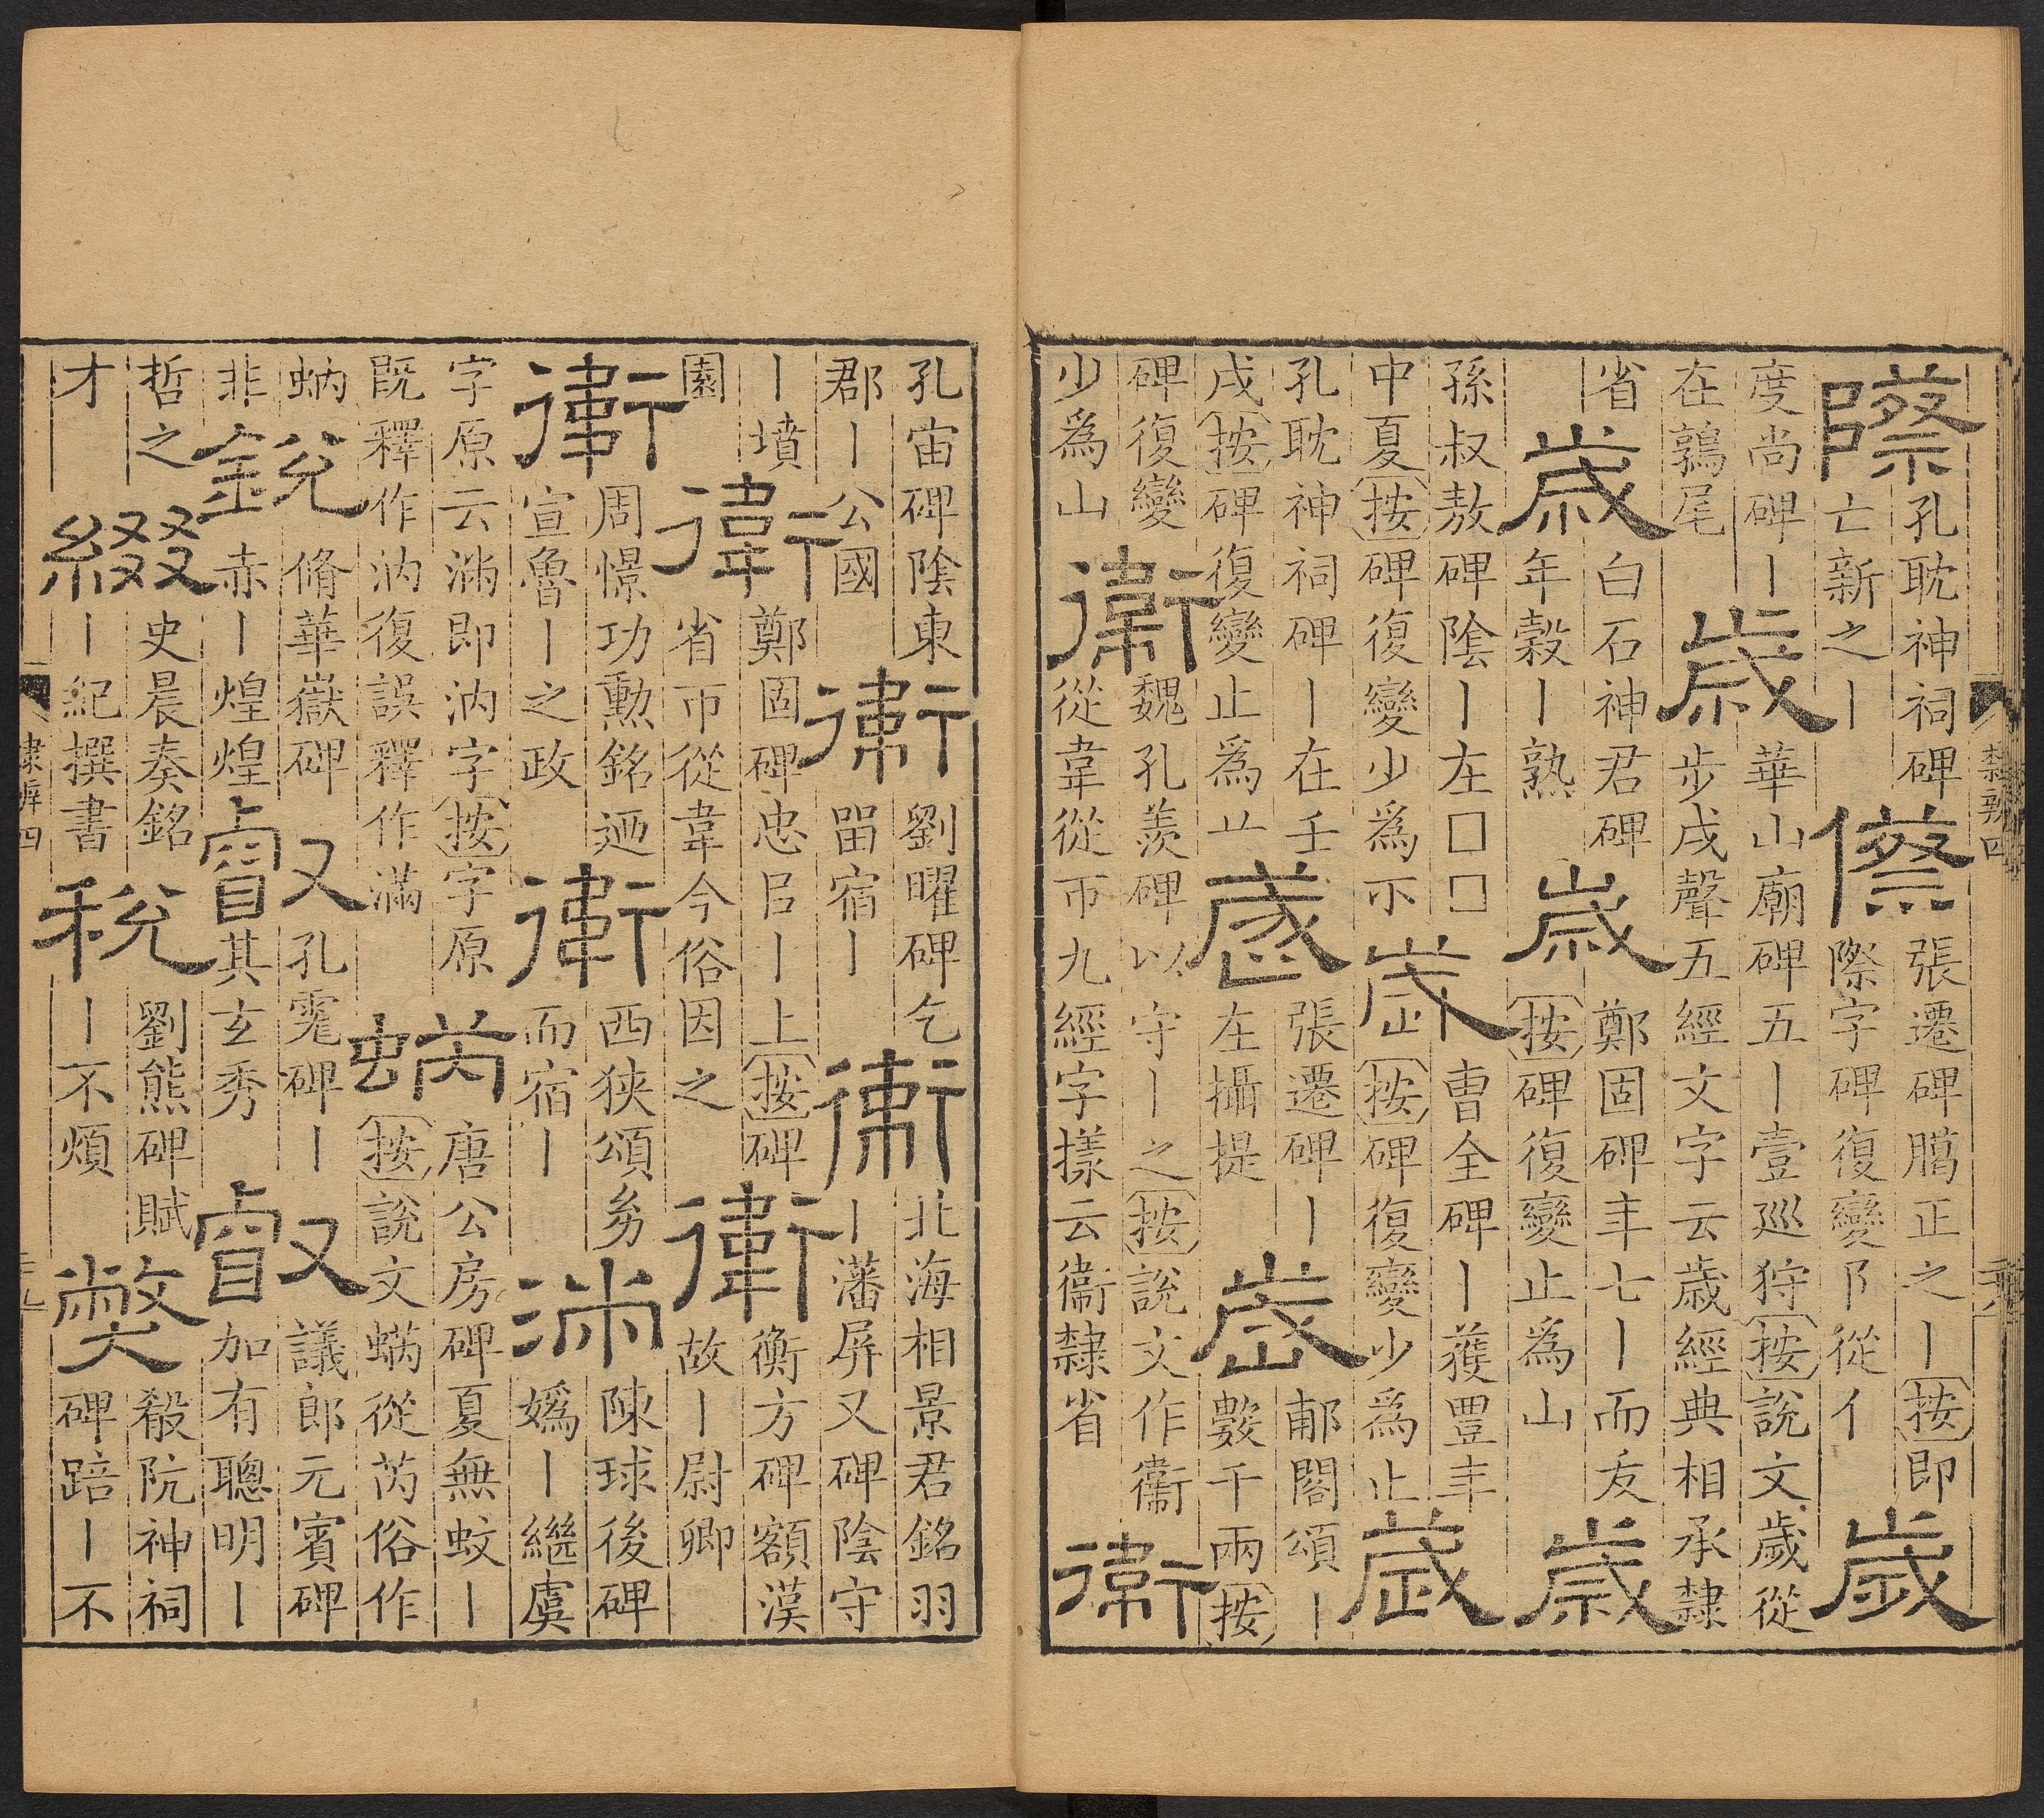 際
孔耽神祠碑
亡新之丨
傺
張遷碑臈正之丨按即
際字碑復變阝從亻
歲
度尚碑丨
在鶉尾
歳
華山廟碑五丨壹巡狩按說文歲從
步戌聲五經文字云歳經典相承隸
省
歳
白石神君碑
年穀丨熟
歳
鄭固碑年七丨而夭
按碑復變止爲山
歳
孫叔敖碑陰丨在囗囗
中夏按碑復變少爲示
歳
曹全碑丨獲豊年
按碑復變少爲止
歳
孔耽神祠碑丨在壬
戌按碑復變止爲䒑
歳
張遷碑丨
在攝提
歳
郙閣頌丨
數千兩按
碑復變
少爲山
衛
魏孔羨碑以守丨之按說文作衞
從韋從帀九經字㨾云衞隸省
衛
隸辨四
孔宙碑陰東
郡丨公國
衛
劉曜碑乞
畱宿丨
衛
北海相景君銘羽
丨藩屏又碑陰守
丨墳
園
衛
鄭固碑忠臣丨上按碑
省帀從韋今俗因之
衛
衡方碑額漢
故丨尉卿
衛
周憬功勲銘迺
宣魯丨之政
衛
西狹頌㓜
而宿丨
㳽
陳球後碑
嬀丨繼虞
字原云㳽即汭字按字原
既釋作汭復誤釋作滿
蜹
唐公房碑夏無蚊丨
按說文蜹從芮俗作
蚋
非
銳
脩華嶽碑
赤丨煌煌
叡
孔霮碑丨
其玄秀
叡
議郎元賓碑
加有聰明丨
哲之
才
綴
史晨奏銘
丨紀撰書
稅
劉熊碑賦
丨不煩
弊
殽阬神祠
碑踣丨不
隸辨四